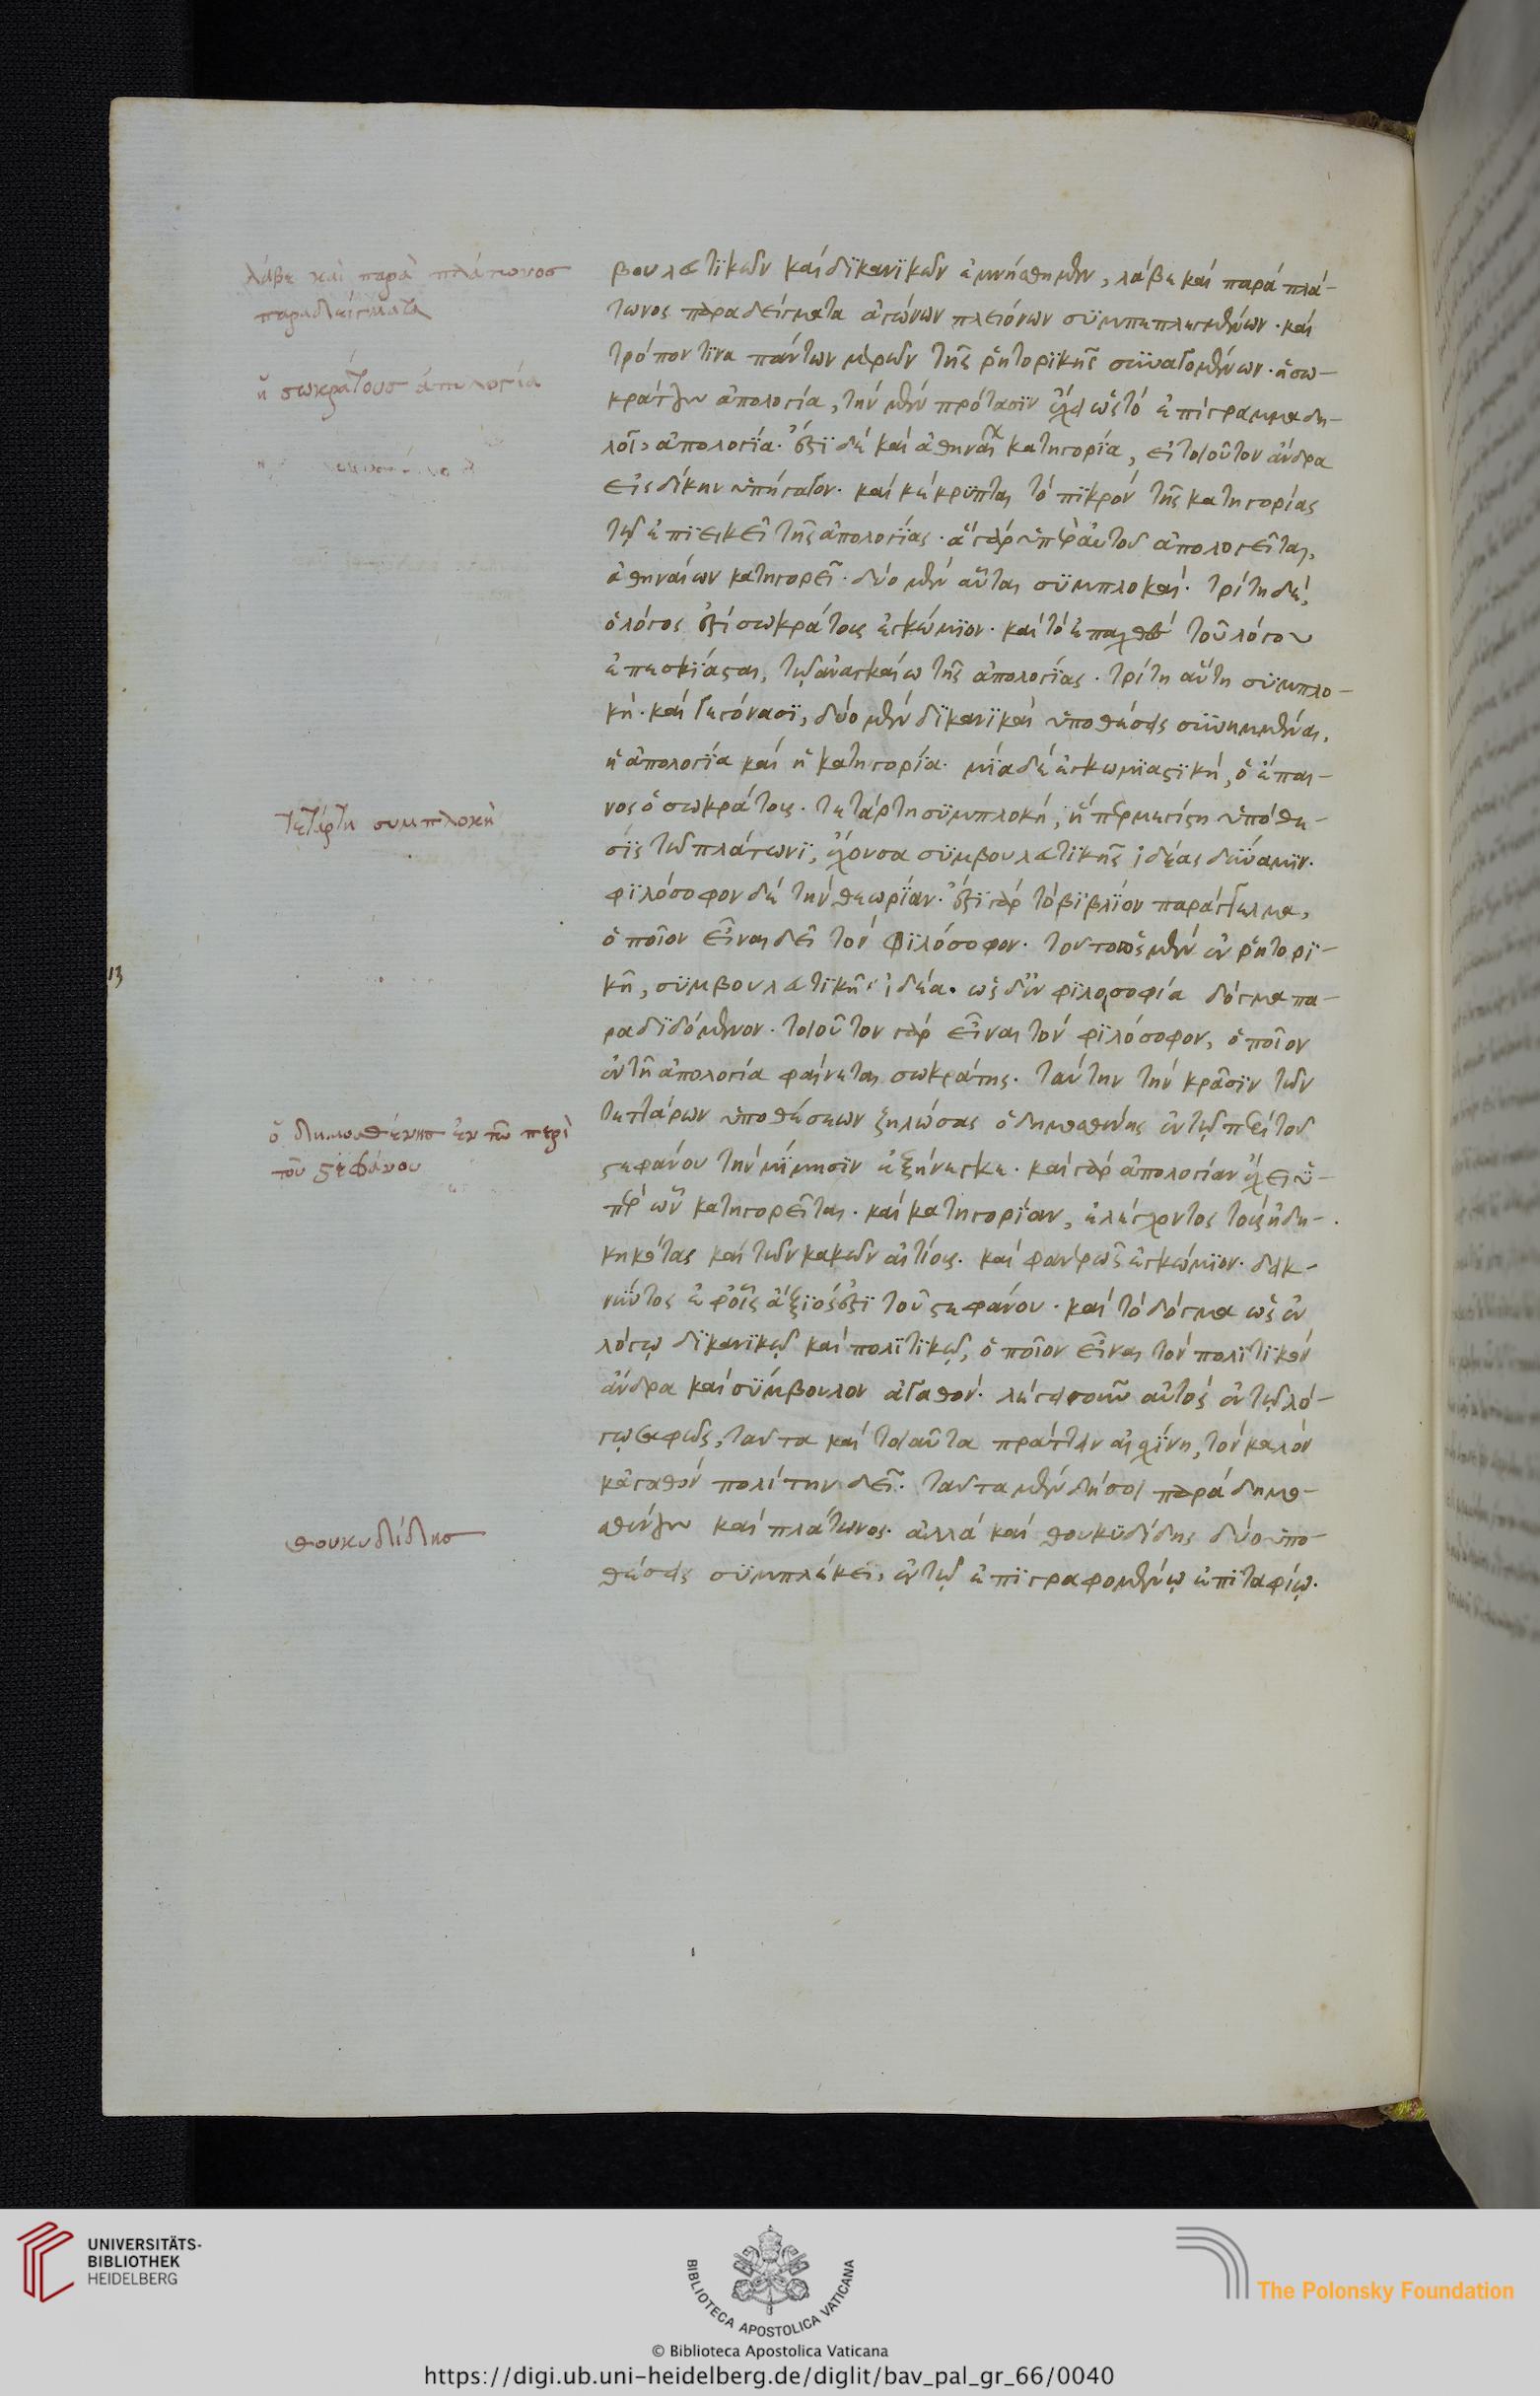 λάβε καὶ παρὰ πλάτωνοσ
παραδείγματα
ἡ σωκράτουσ ἀπολογία
τετάρτη συμπλοκὴ
13
ὁ δημοσθένησ ἐν τῶ περὶ
τοῦ στεφάνου
θουκυδίδησ
βουλευτϊκῶν καὶ δϊκανϊκῶν ἐμνήσθημεν, λάβε καὶ παρὰ πλά-
τωνος παραδείγματα ἀγώνων πλειόνων συμπεπλεγμένων· καὶ
τρόπον τϊνα πάντων μερῶν τῆς ῥητορϊκῆς συναγομένων· ἡ σω-
κράτους ἀπολογία, τὴν μὲν πρότασϊν ἔχει ὡς τὸ ἐπίγραμμα δη-
λοῖ, ἀπολογϊα· ἔστϊ δὲ καὶ ἀθηναίων κατηγορϊα, εἰ τοιοῦτον ἄνδρα
εἰς δίκην ὑπήγαγον· καὶ κέκρυπται τὸ πϊκρὸν τῆς κατηγορίας
τῷ ἐπϊεικεῖ τῆς ἀπολογϊας· ἃ γὰρ ὑπὲρ αὐτοῦ ἀπολογεῖται,
ἀθηναίων κατηγορεῖ· δύο μὲν αὗται συμπλοκαί· τρίτη δὲ,
ὁ λόγος ἐστὶ σωκράτους ἐγκώμϊον· καὶ τὸ ἐπαχθὲς τοῦ λόγου
ἐπεσκϊασται, τῷ ἀναγκαίω τῆς ἀπολογίας· τρίτη αὕτη συμπλο-
κή· καὶ γεγόνασϊ, δύο μὲν δϊκανϊκαὶ ὑποθέσεις συνημμέναι,
ἡ ἀπολογϊα καὶ ἡ κατηγορϊα· μϊα δὲ ἐγκωμϊαστϊκή, ὁ ἔπαι-
νος ὁ σωκράτους· τετάρτη συμπλοκή, ἥπερ μεγίστη ὑπόθε-
σϊς τῷ πλάτωνϊ, ἔχουσα συμβουλευτϊκῆς ἰδέας δύναμϊν·
φϊλόσοφον δὲ τὴν θεωρϊαν· ἔστϊ γὰρ τὸ βϊβλϊον παράγγελμα,
ὁποῖον εἶναι δεῖ τὸν φϊλόσοφον· τοῦτο ὡς μὲν ἐν ῥητορϊ-
κῆ, συμβουλευτϊκῆς ἰδέα· ὡς δ' ἐν φϊλοσοφία δόγμα πα-
ραδϊδόμενον· τοιοῦτον γὰρ εἶναι τὸν φϊλόσοφον, ὁποῖον
ἐν τῆ ἀπολογία φαίνεται σωκράτης· ταύτην τὴν κρᾶσϊν τῶν
τεττάρων ὑποθέσεων ζηλώσας ὁ δημοσθένης ἐν τῷ περὶ τοῦ
στεφάνου τὴν μίμησϊν ἐξήνεγκε· καὶ γὰρ ἀπολογίαν ἔχει ὑ-
πὲρ ὧν κατηγορεῖται· καὶ κατηγορϊαν, ἐλέγχοντος τοὺς ἠδη-
κηκότας καὶ τῶν κακῶν αἰτίους· καὶ φανερῶς ἐγκώμϊον· δεικ-
νύντος ἐφ' οἷς ἄξϊός ἐστϊ τοῦ στεφάνου· καὶ τὸ δόγμα ὡς ἐν
λόγῳ δϊκανϊκῷ καὶ πολϊτϊκῷ, ὁποῖον εἶναι τὸν πολϊτϊκὸν
ἄνδρα καὶ σύμβουλον ἀγαθόν· λέγει γοῦν αὐτὸς ἐν τῷ λό-
γῳ σαφῶς, ταῦτα καὶ τοιαῦτα πράττειν αἰσχϊνη, τὸν καλὸν
κἀγαθὸν πολίτην δεῖ· ταῦτα μὲν δή σοι παρὰ δημο-
σθένους καὶ πλάτωνος· ἀλλὰ καὶ θουκυδίδης δύο ὑπο-
θέσεις συμπλέκει, ἐν τῷ ἐπϊγραφομένῳ ἐπϊταφίῳ·
UNIVERSITÄTS-
BIBLIOTHEK
HEIDELBERG
BIBLIOTECA APOSTOLICA VATICANA
The Polonsky Foundation
© Biblioteca Apostolica Vaticana
https://digi.ub.uni-heidelberg.de/diglit/bav_pal_gr_66/0040